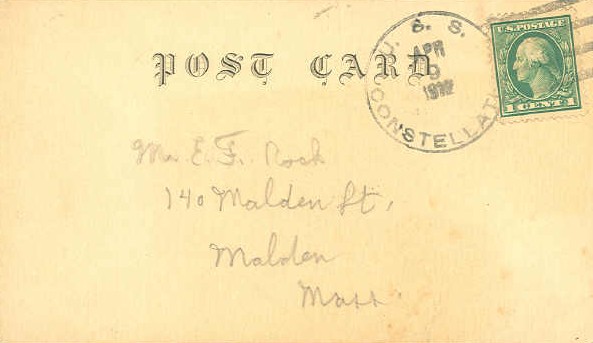 POST CARD
U. S. S. CONSTELLAT
APR
9
U.S. POSTAGE
1 CENT 1
Mr. E. F. Rock
140 Malden St,
Malden
Mass.